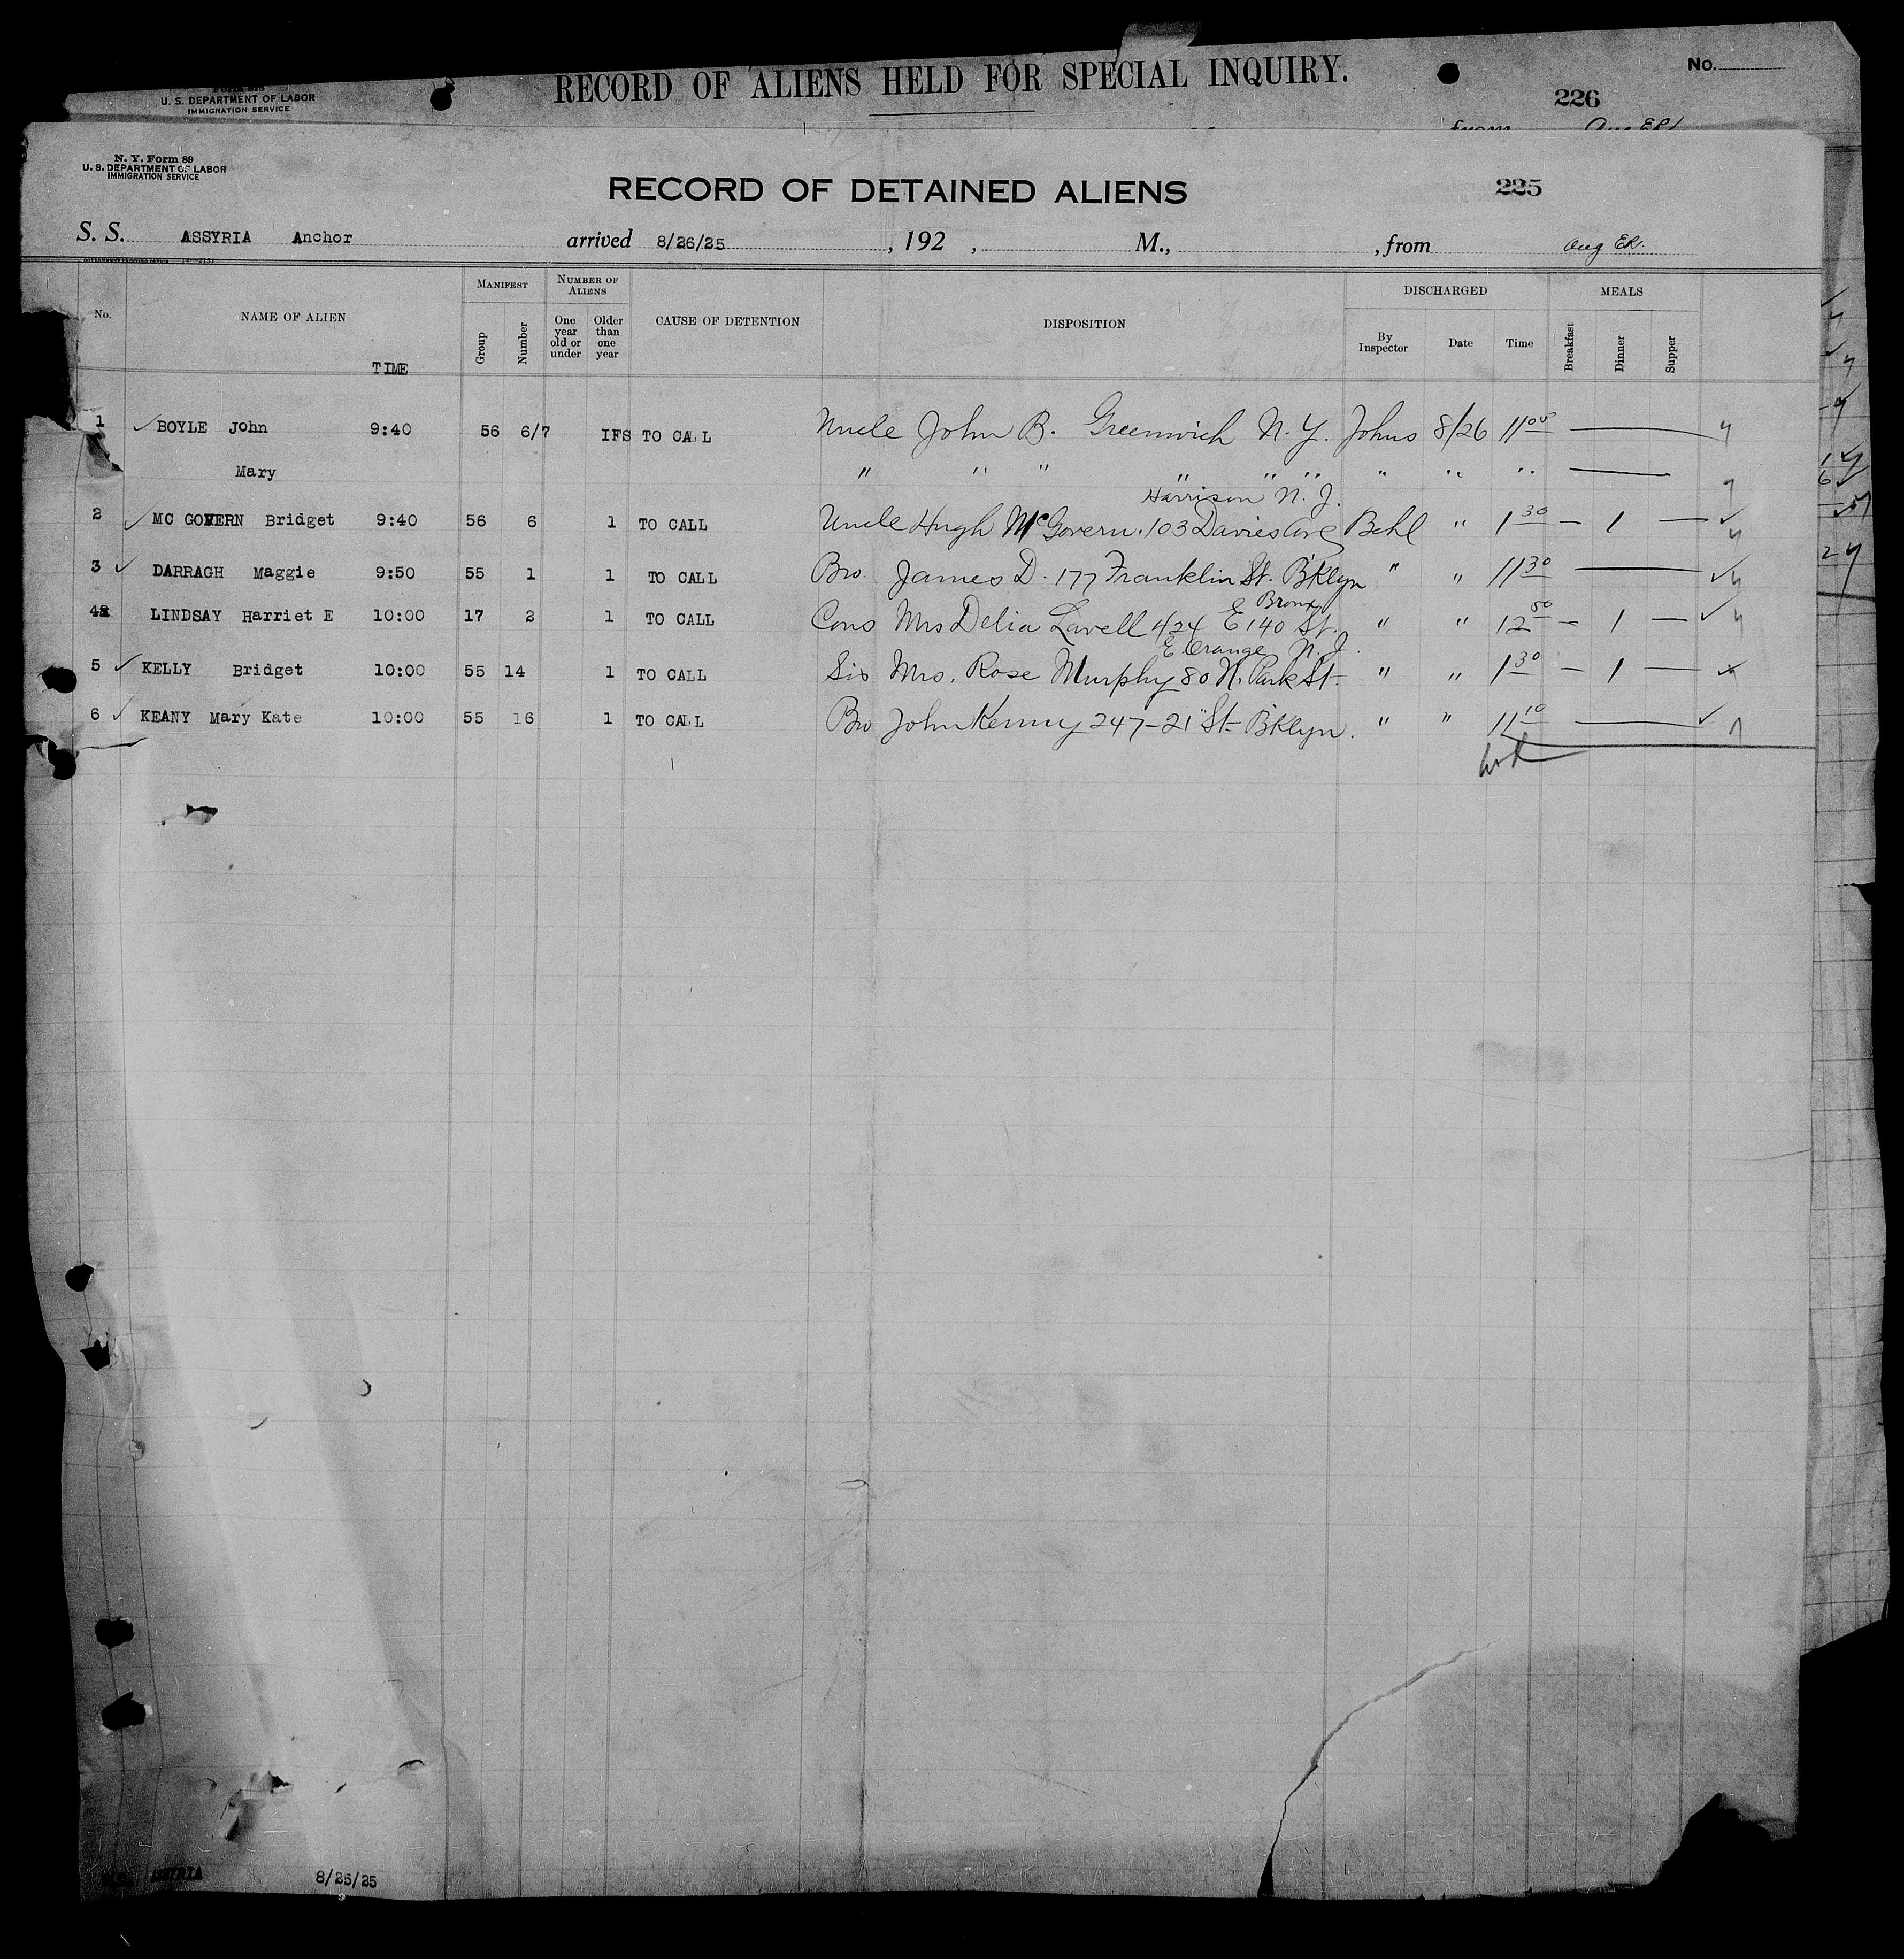 U. S. DEPARTMENT OF LABOR
IMMIGRATION SERVICE
RECORD OF ALIENS HELD FOR SPECIAL INQUIRY.
No.
226
from
N. Y. Form 89
U. S. DEPARTMENT OF LABOR
IMMIGRATION SERVICE
RECORD OF DETAINED ALIENS
225
S. S. ASSYRIA Anchor arrived 8/26/25 , 192 , M., , from
No. NAME OF ALIEN TIME MANIFEST Group Number NUMBER OF ALIENS One year old or under Older than one year CAUSE OF DETENTION DISPOSITION DISCHARGED By Inspector Date Time MEALS Breakfast Dinner Supper
1 ✓ BOYLE John 9:40 56 6/7 IFS TO CALL Uncle John B. Greenwich N. Y. Johns 8/26 11 00 —
Mary " " " " " " " " " —
Harrison N. J.
2 ✓ MC GOVERN Bridget 9:40 56 6 1 TO CALL Uncle Hugh McGovern. 103 Davies Ave Behl " 1 30 — 1 — ✓
3 ✓ DARRAGH Maggie 9:50 55 1 1 TO CALL Bro. James D. 177 Franklin St. B'klyn " " 11 30 — ✓
Bronx
4 LINDSAY Harriet E 10:00 17 2 1 TO CALL Cous Mrs Delia Lavell 424 E 140 St. " " 12 50 — 1 — ✓
E. Orange N. J.
5 ✓ KELLY Bridget 10:00 55 14 1 TO CALL Sis Mrs. Rose Murphy 80 N. Park St. " " 1 30 — 1 —
6 ✓ KEANY Mary Kate 10:00 55 16 1 TO CALL Bro John Kenny 247-21 St. B'klyn. " " 11 10 — ✓
ASSYRIA 8/26/25